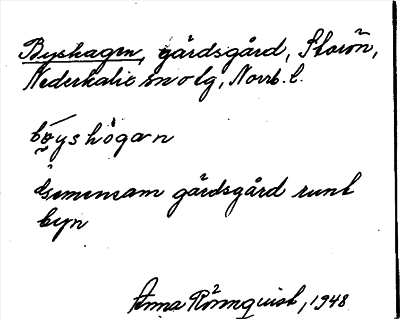 Byshagen, gårdsgård, Storön,
Nederkalix snolg, Norrb. l.
böyshögan
Gemensam gårdsgård runt
byn
Anna Rönnquist, 1948